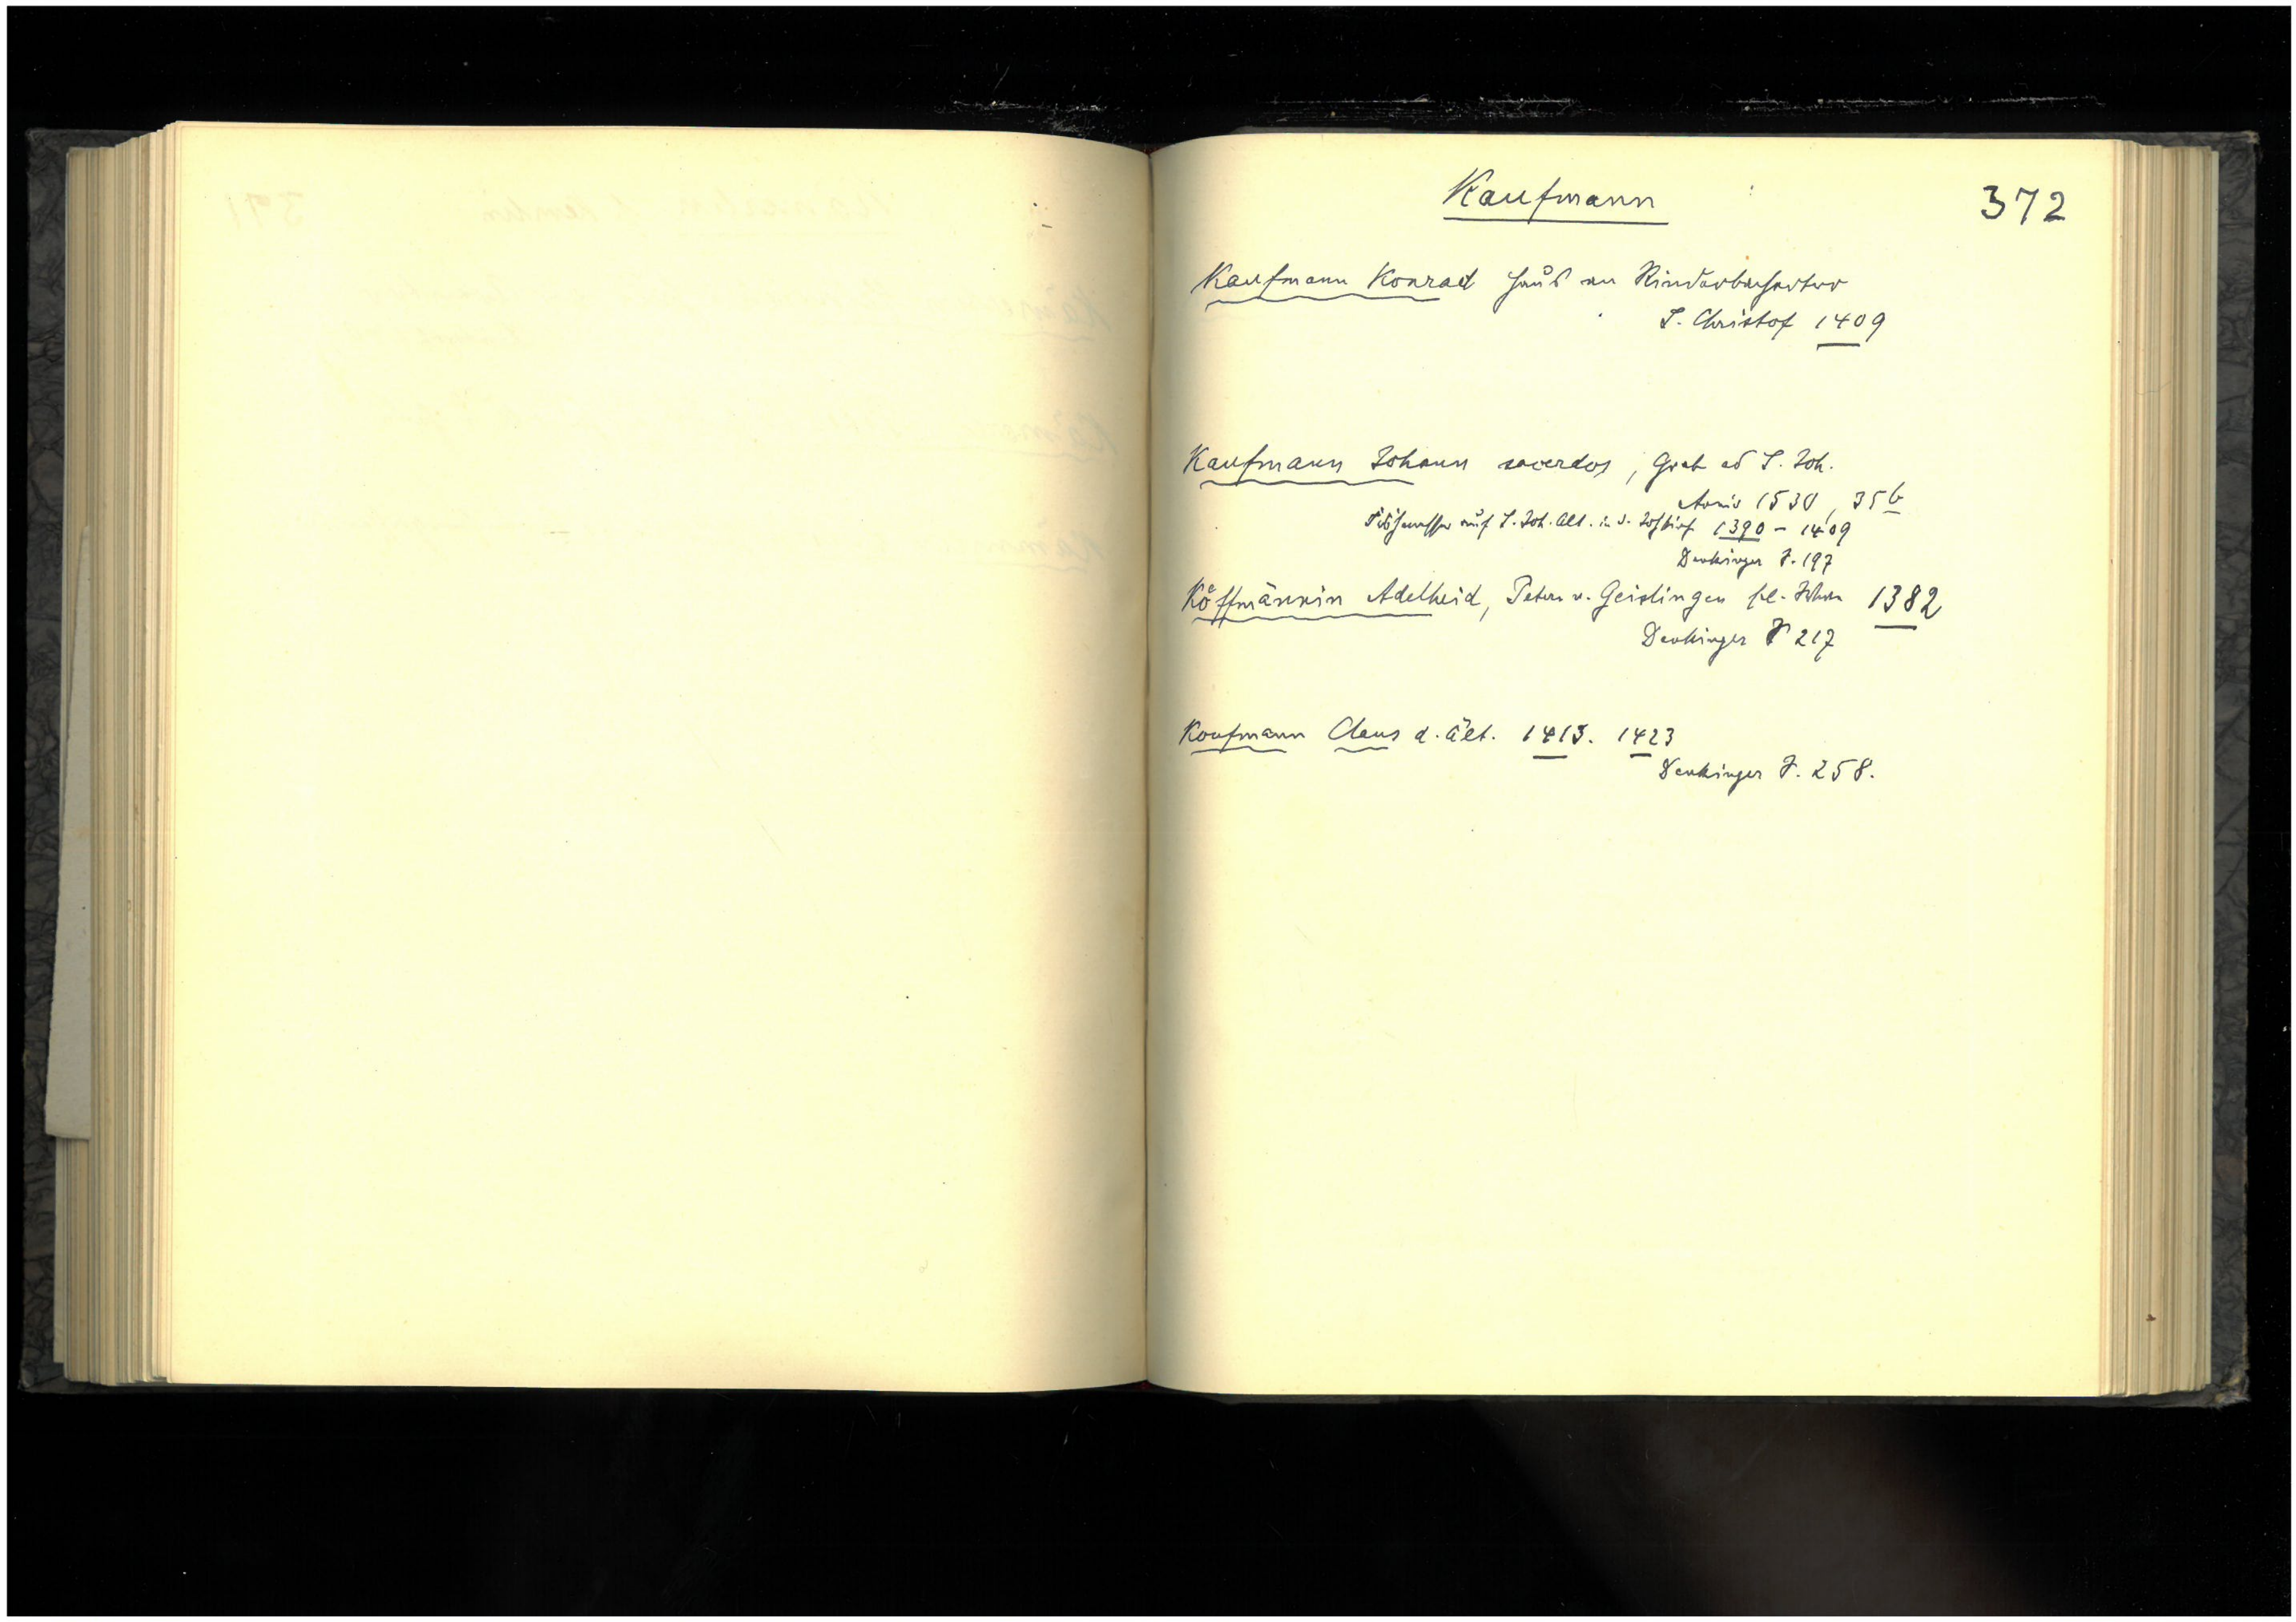 Kaufmann
372
Kaufmann Konrad Haus am Rinderbachertor
S. Christof 1409
Kaufmann Johann sacerdos, Grab ad S. Joh.
Anniv 1530, 35b
auf S. Joh. Alt. in d. 1390 - 1409
Denkinger S. 197
Köffmännin Adelheid, Peters v. Geislingen sel. Witwe 1382
Denkinger S 217
Koufmann Claus d. Ält. 1413. 1423
Denkinger S. 258.